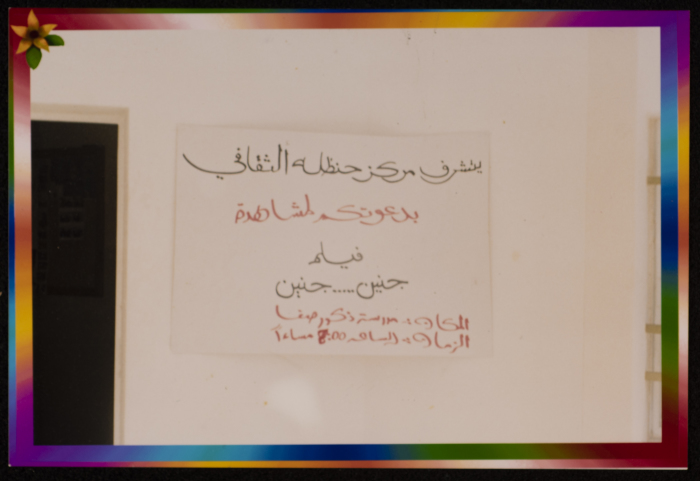 يتشرف مركز حنظله الثقافي
بدعوتكم لمشاهدة
فيلم
جنين.....جنين
المكان: مدرسة ذكور صفا
الزمان: الساعه 8:00 مساءاً